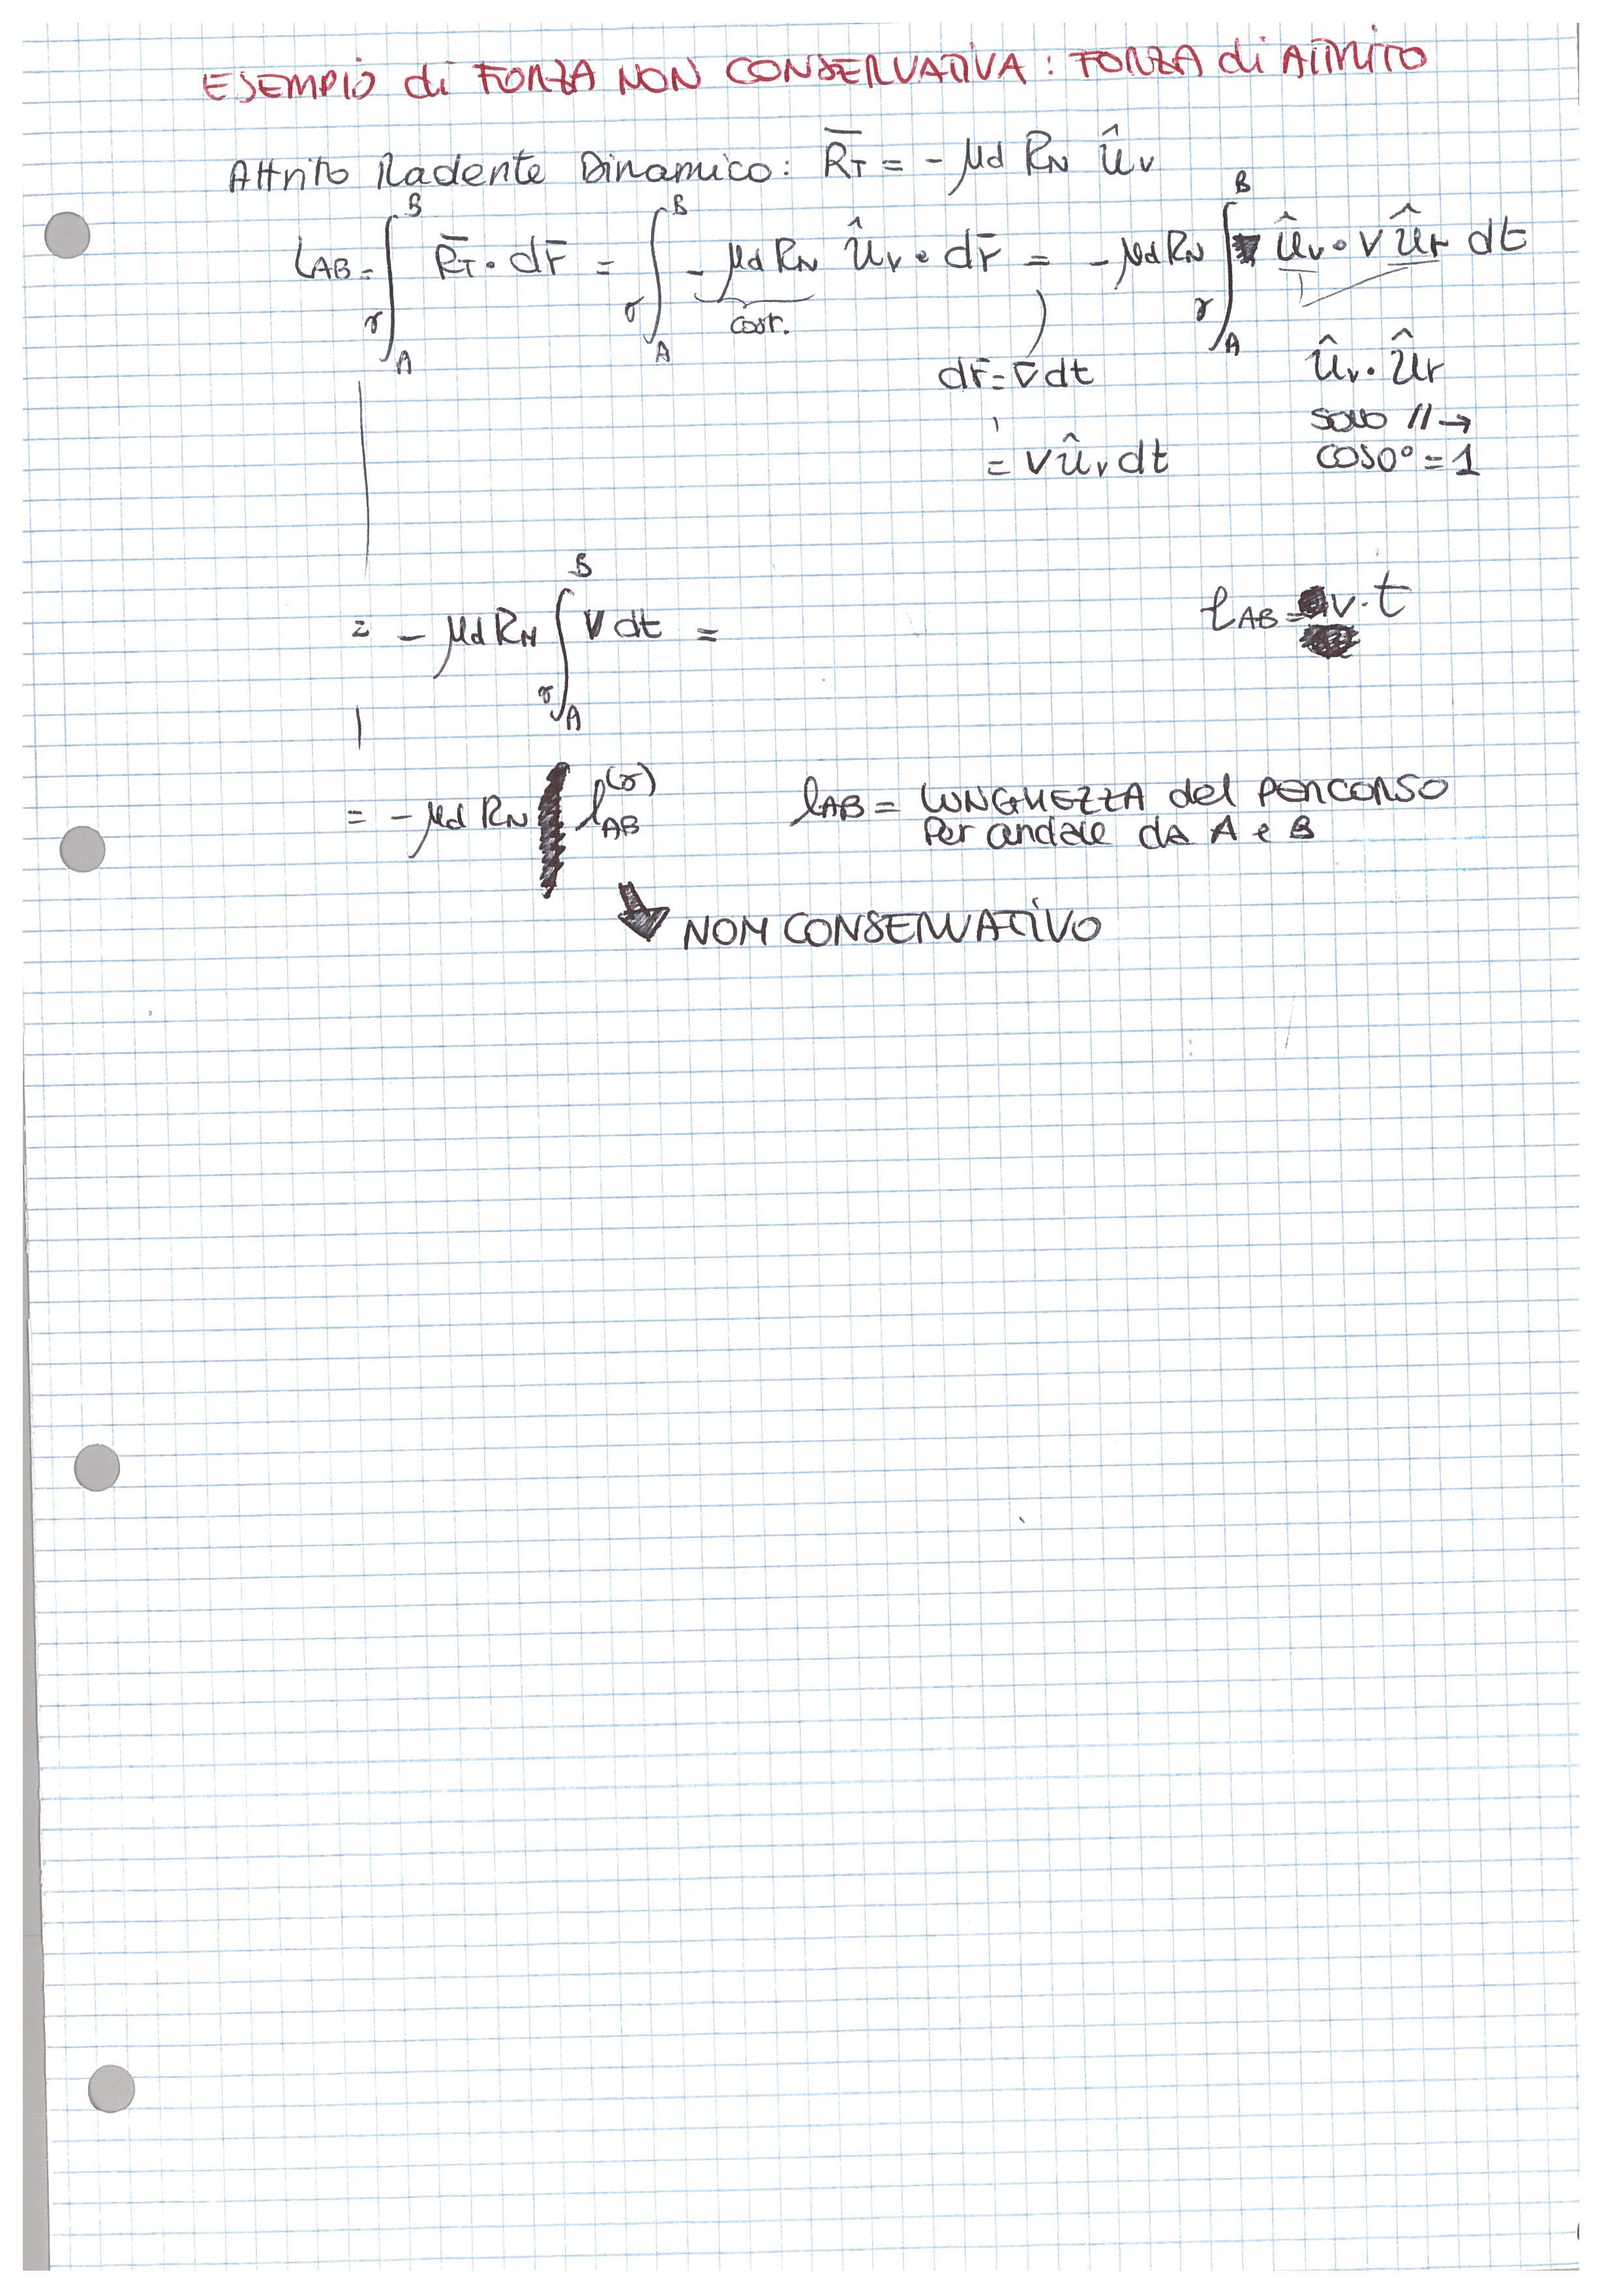 ESEMPIO di FORZA NON CONSERVATIVA: FORZA di ATTRITO
Attrito Radente Dinamico: R̅_T = - μd R_N û_v
L_AB = ∫_γ A^B R̅_T · dr̅ = ∫_γ A^B - μd R_N û_v · dr̅ = - μd R_N ∫_γ A^B û_v · v û_r dt
cost.
dr̅ = v̅ dt
= v û_v dt
û_v · û_r
sono // →
cos0° = 1
= - μd R_N ∫_γ A^B v dt =
l_AB = v · t
= - μd R_N l_AB^(γ)
l_AB = LUNGHEZZA del PERCORSO
Per andare da A e B
NON CONSERVATIVO